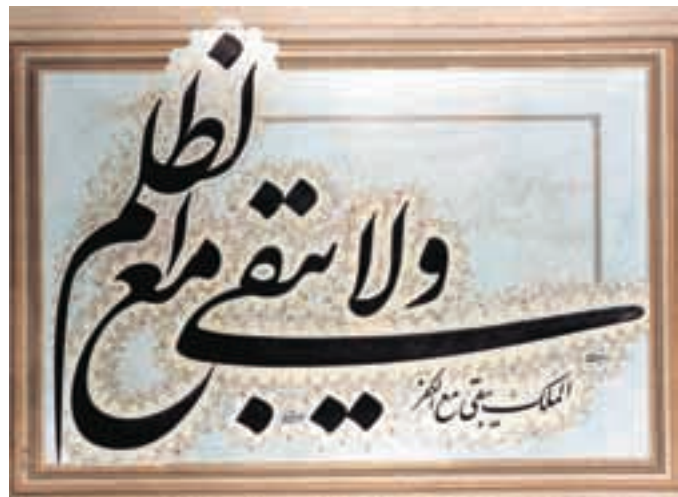 الملک یبقی مع الکفر
ولا یبقی مع الظلم